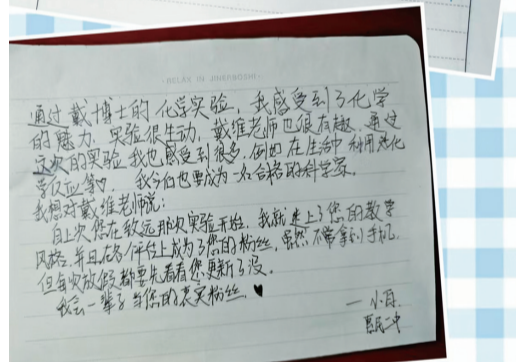 RELAX IN
通过戴博士的化学实验，我感受到了化学
的魅力，实验很生动，戴维老师也很有趣，通过
这次的实验我也感受到很多，例如在生活中利用化
学反应等♡． 我今后也要成为一名合格的科学家。
我想对戴维老师说：
自上次您在致远那次实验开始，我就迷上了您的教学
风格，并且在各个平台上成为了您的粉丝，虽然不常拿到手机，
但每次放假都要先看看您更新了没。
我会一辈子当您的忠实粉丝．♥
二中